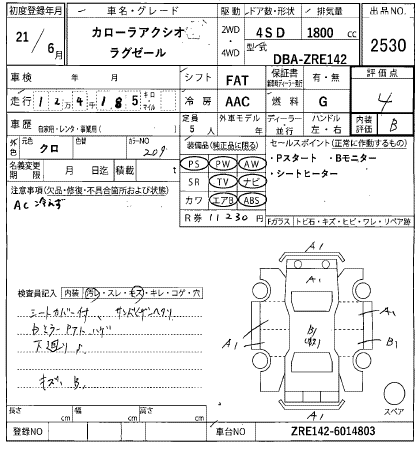 初度登録年月 車名・グレード 駆動 ドア数・形状 排気量 出品NO.
21/6月 カローラアクシオ ラグゼール 2WD・4WD 4SD 1800cc 2530
型式 DBA-ZRE142
車検 年 月 シフト FAT 保証書 有・無 評価点 4
走行 124185 キロ・マイル 冷房 AAC 燃料 G 内装評価 B
車歴 自家用・レンタ・事業用( ) 定員 5人 外車モデル年 ディーラー・並行 ハンドル 左・右
外色 元色 クロ 色替 カラーNO 209 装備品(純正品に限る) セールスポイント(正常に作動するもの)
PS PW AW ・Pスタート ・Bモニター
名義変更期限 月 日迄 積載 t SR TV ナビ ・シートヒーター
注意事項(欠品・修復・不具合箇所および状態) カワ エアB ABS
AC冷えず R券 11230円 Fガラス トビ石・キズ・ヒビ・ワレ・リペア跡
A1
検査員記入 内装 汚レ・スレ・モズ・キレ・コゲ・穴
シートカバー付
A1
A1 B1 B1
下廻り
キズ B1
A1
スペア
長さ cm 幅 cm 高さ cm
登録NO 車台NO ZRE142-6014803